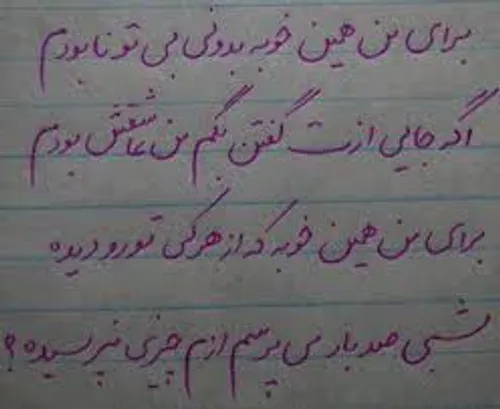 برای من همین خوبه بدونی بی تو نابودم
اگه جایی ازت گفتن بگم من عاشقش بودم
برای من همین خوبه که از هرکی تورو دیده
شبی صد بار می پرسم ازم چیزی نپرسیده؟